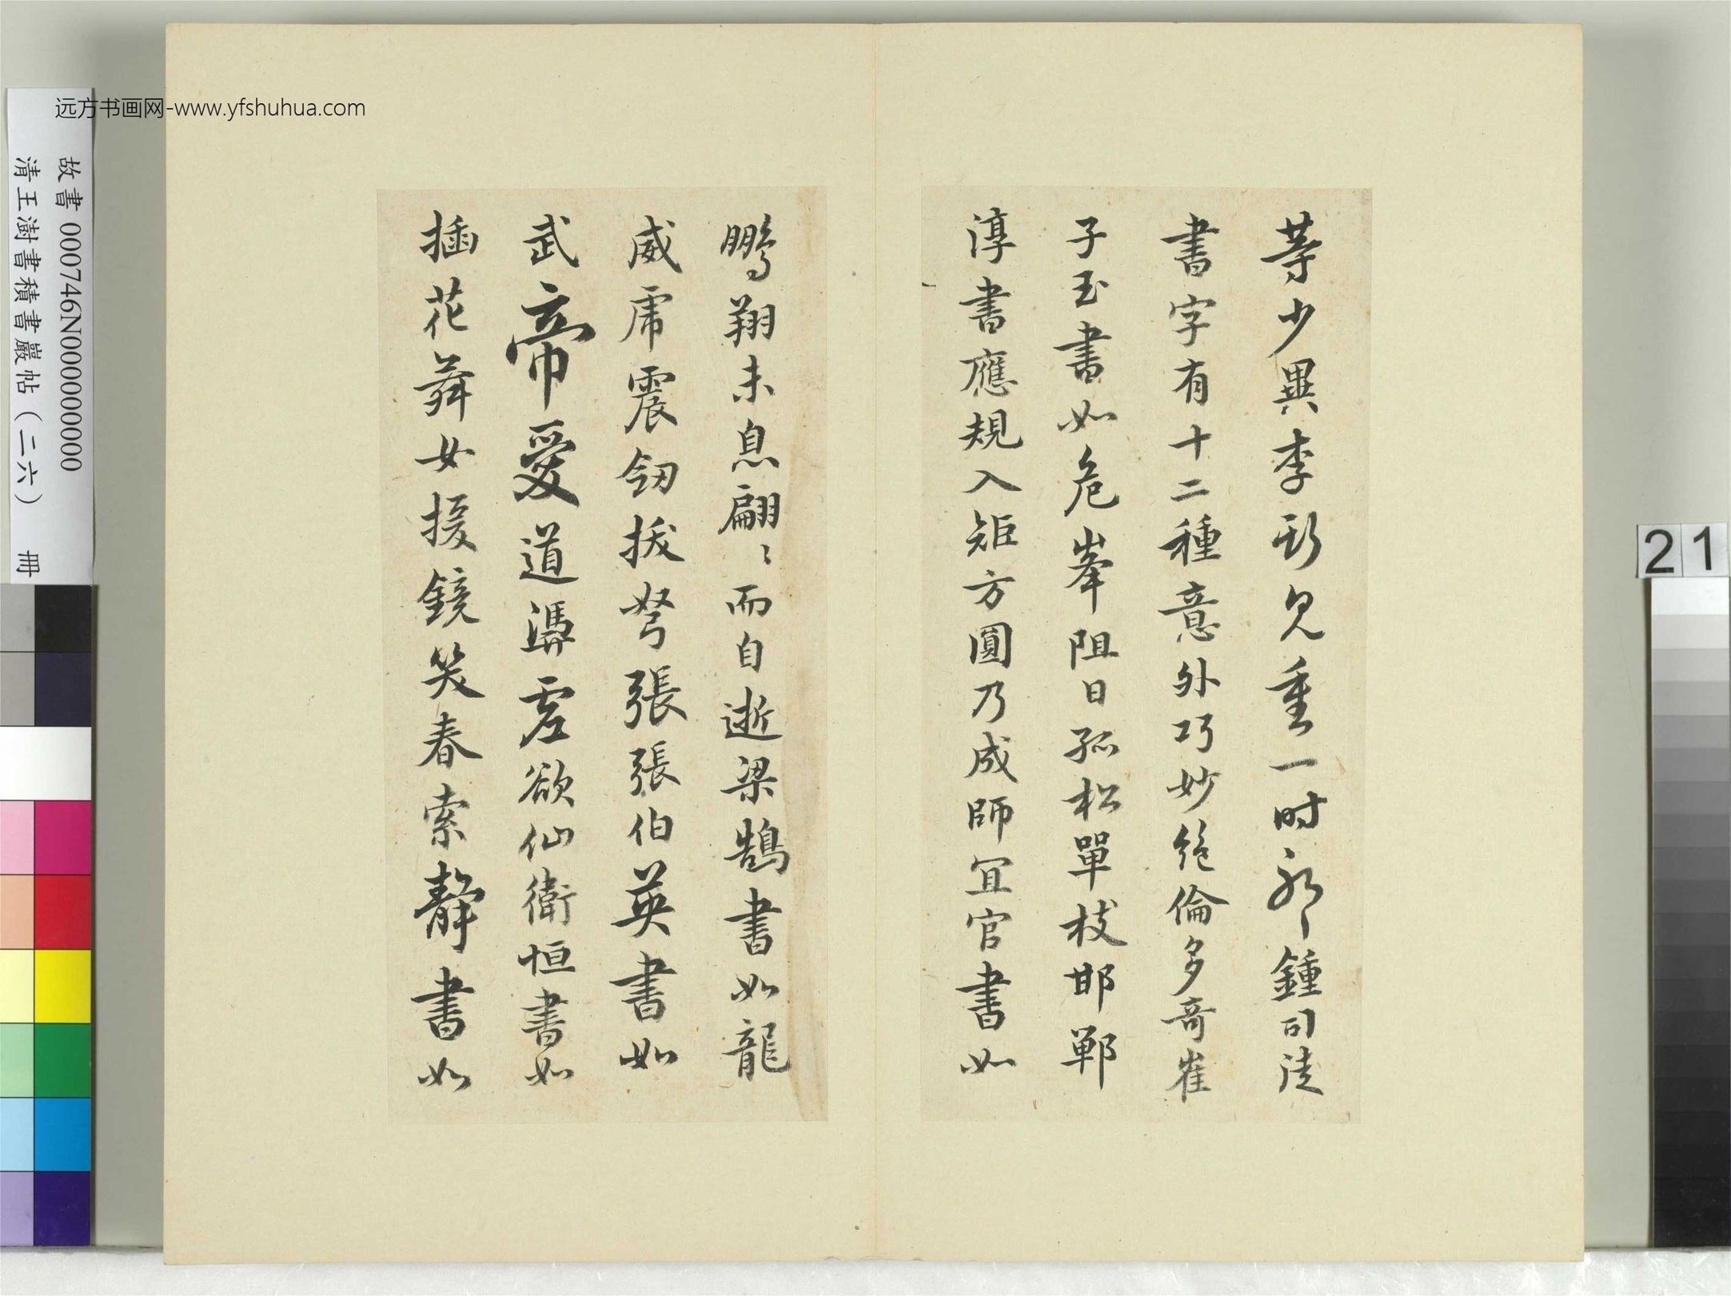 远方书画网-www.yfshuhua.com
故書 000746N000000000
清王澍書積書巖帖(二六) 冊
21
等少異李斯見重一時耶鍾司徒
書字有十二種意外巧妙絕倫多奇崔
子玉書如危峯阻日孤松單枝邯鄲
淳書應規入矩方圓乃成師冝官書如
鵬翔未息翩〻而自逝梁鵠書如龍
威虎震釰拔弩張張伯英書如
武帝愛道憑虛欲仙衛恒書如
插花舞女援鏡笑春索靜書如